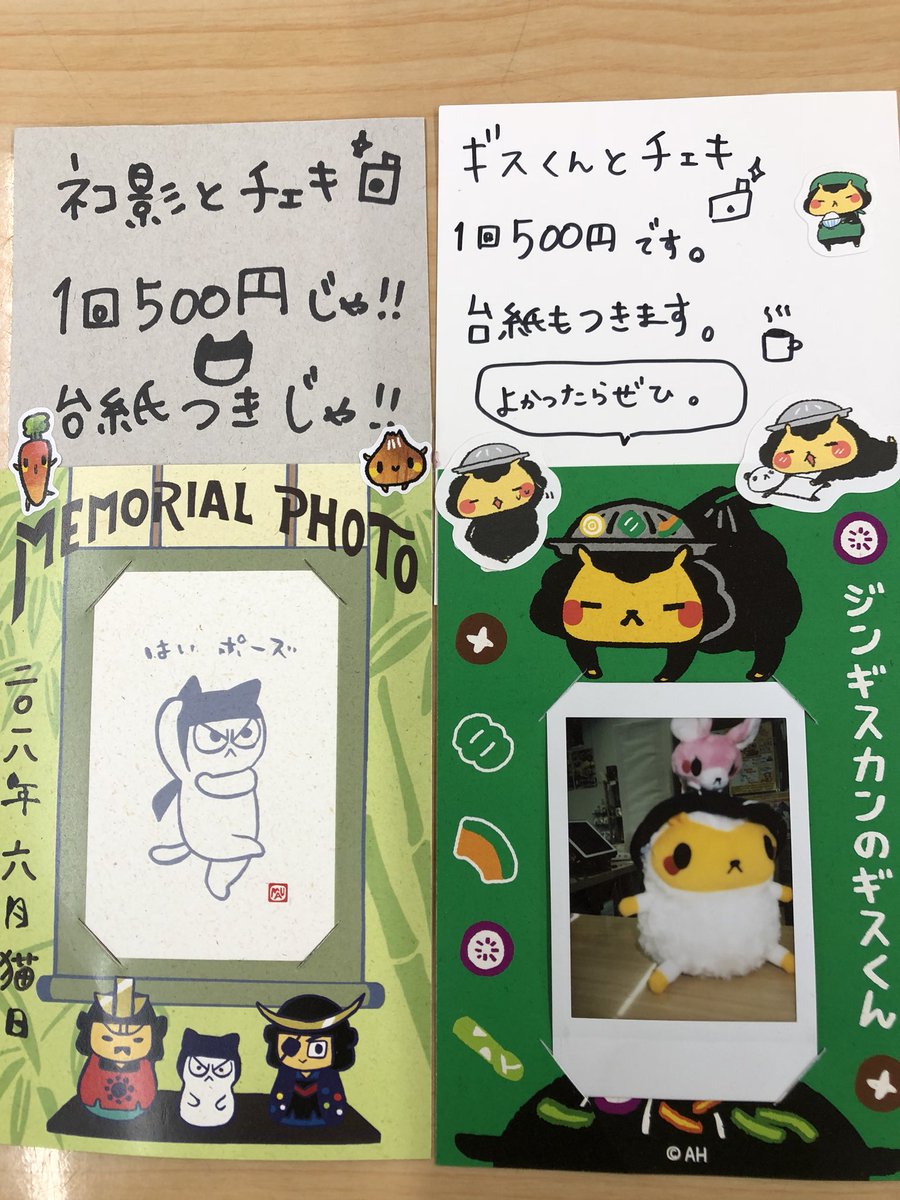 ネコ影とチェキ
1回500円じゃ!!
台紙つきじゃ!!
MEMORIAL PHOTO
はい ポーズ
二〇一八年 六月 猫日
ギスくんとチェキ
1回500円です。
台紙もつきます。
よかったらぜひ。
ジンギスカンのギスくん
©AH